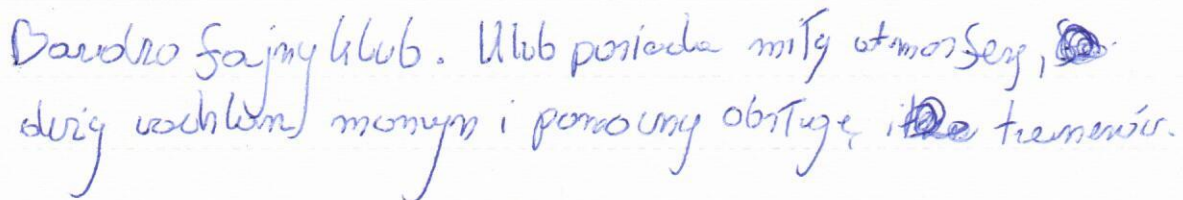 Bardzo fajny klub. Klub posiada miłą atmosferę,
duży maszyn i pomocną obsługę i trenerów.